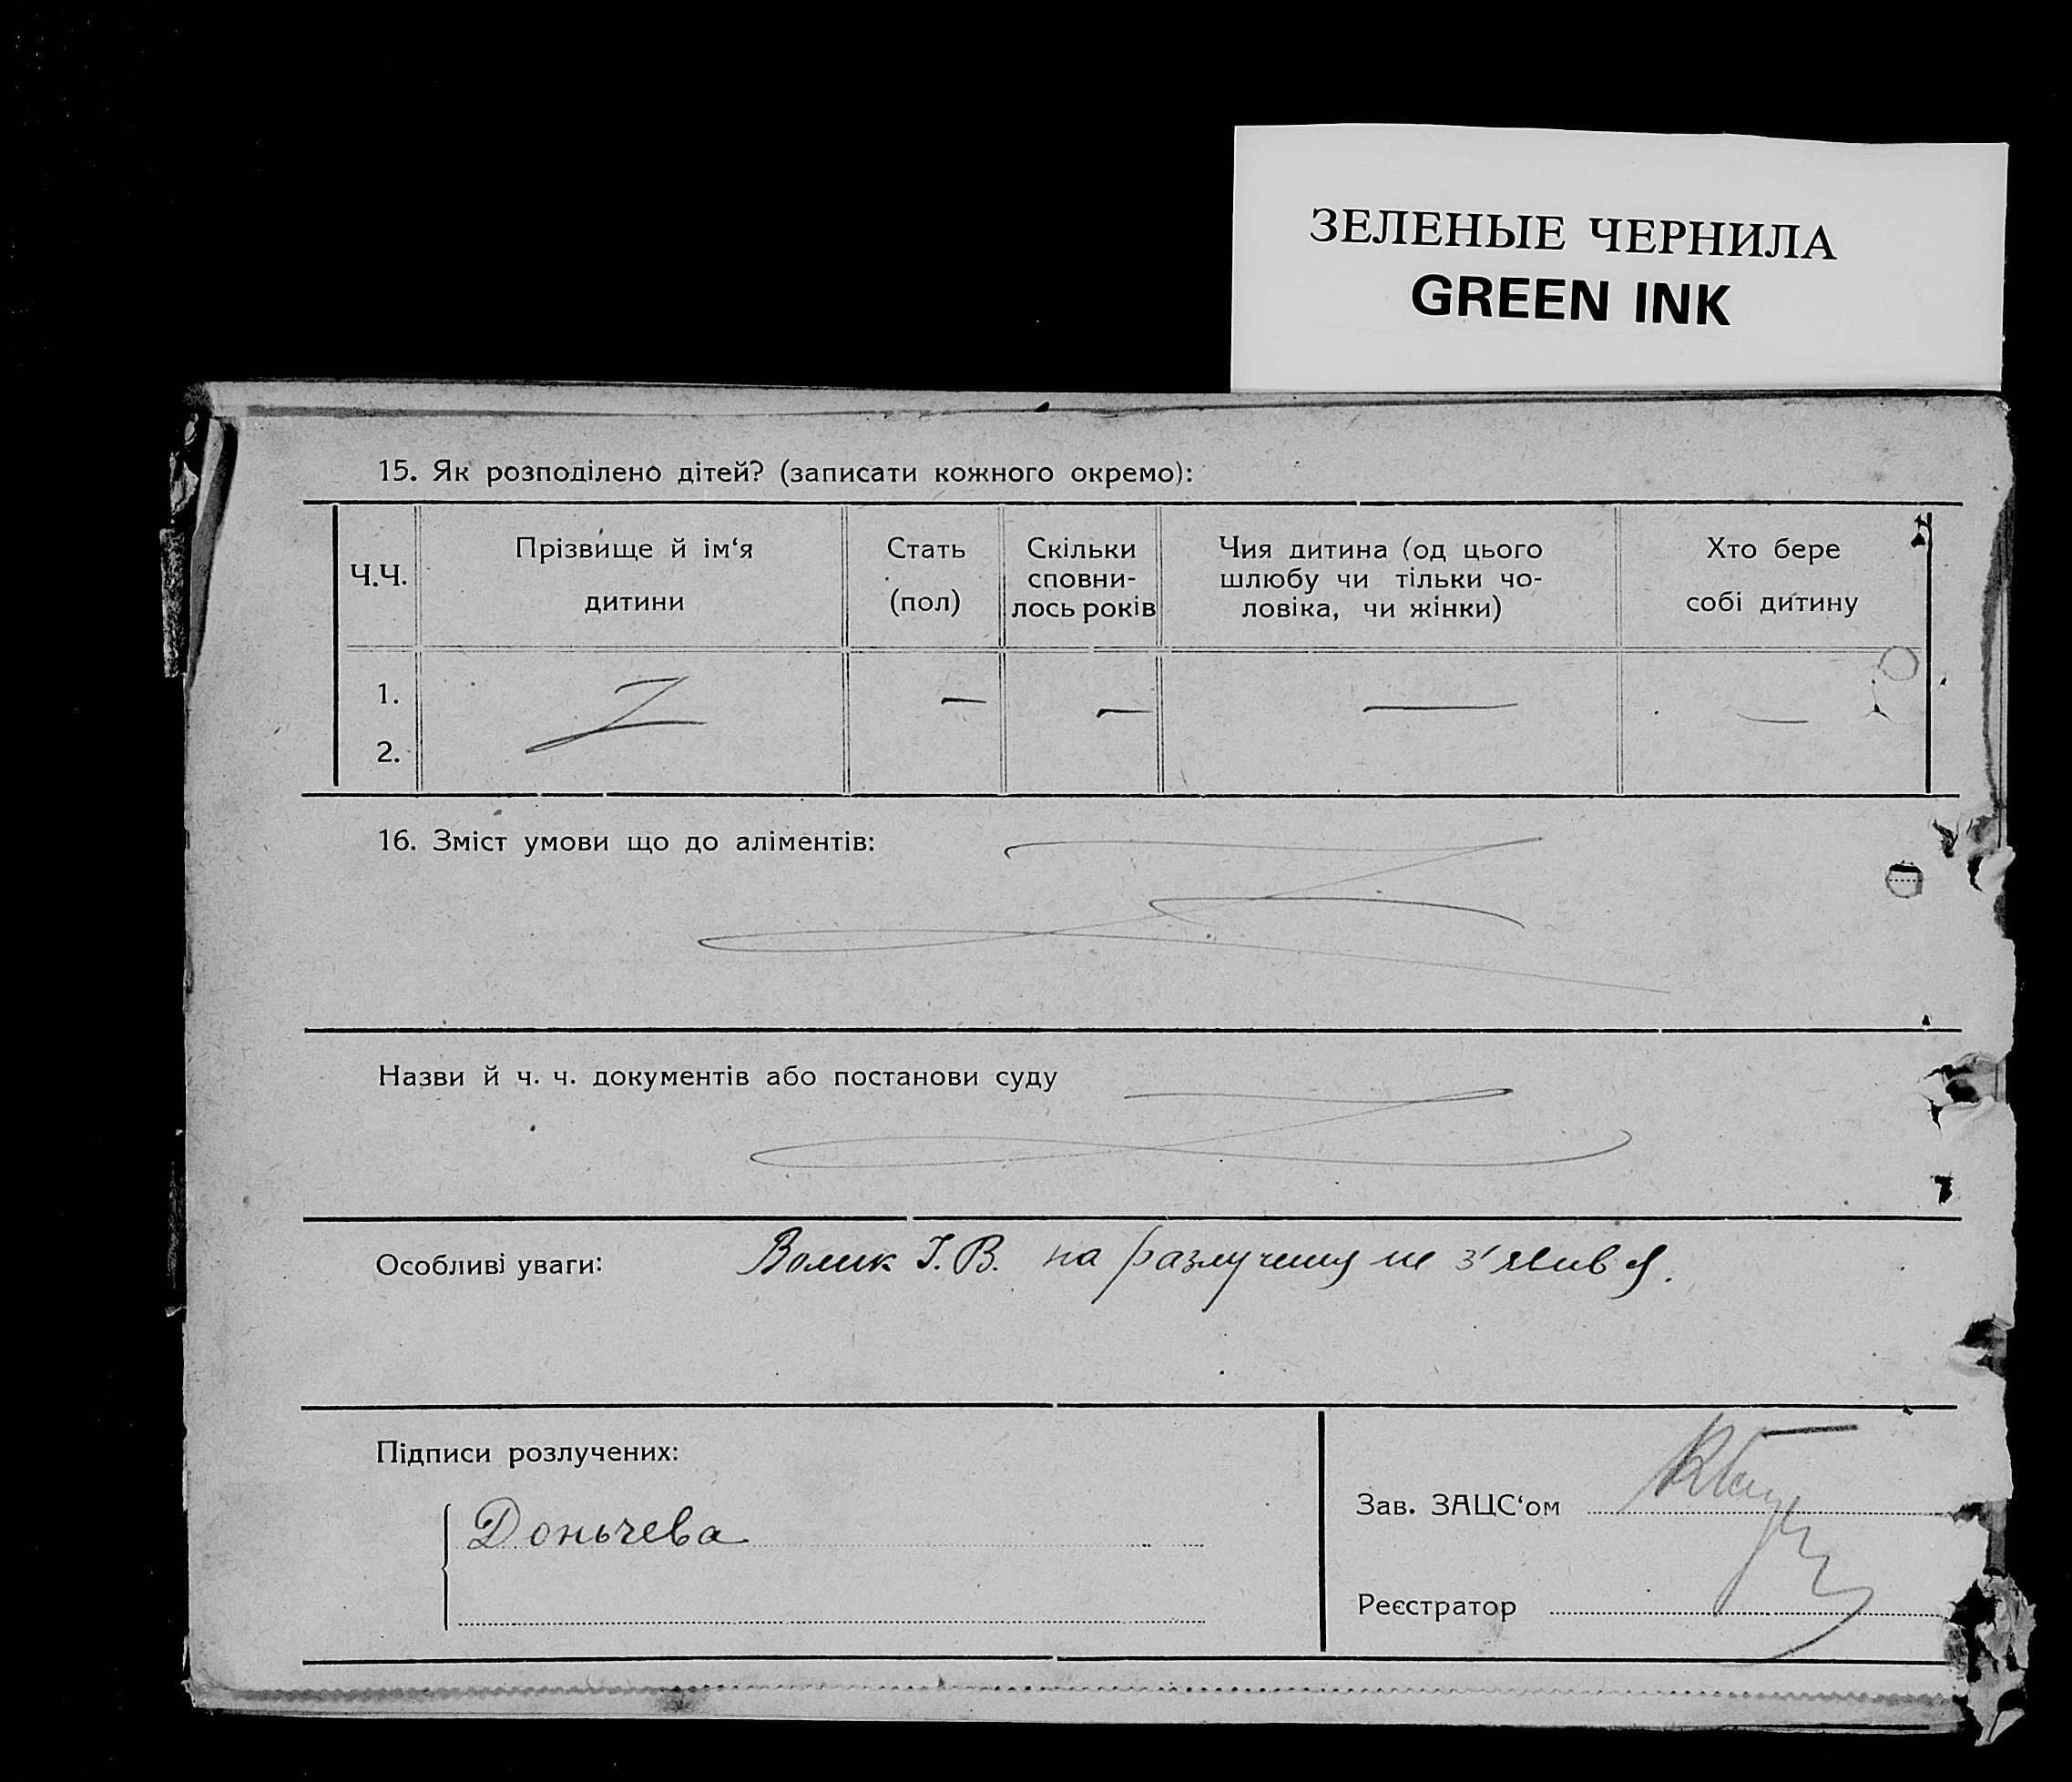 ЗЕЛЕНЫЕ ЧЕРНИЛА
GREEN INK
15. Як розподілено дітей? (записати кожного окремо):
Ч.Ч.
Прізвище й ім‘я
дитини
Стать
(пол)
Скільки
сповни-
лось років
Чия дитина (од цього
шлюбу чи тільки чо-
ловіка, чи жінки)
Хто бере
собі дитину
1. — — — —
2.
16. Зміст умови що до аліментів:
Назви й ч. ч. документів або постанови суду
Особливі уваги: Волик І. В. на разлучення не з'явився.
Підписи розлучених:
Доньчева
Зав. ЗАЦС‘ом
Реєстратор